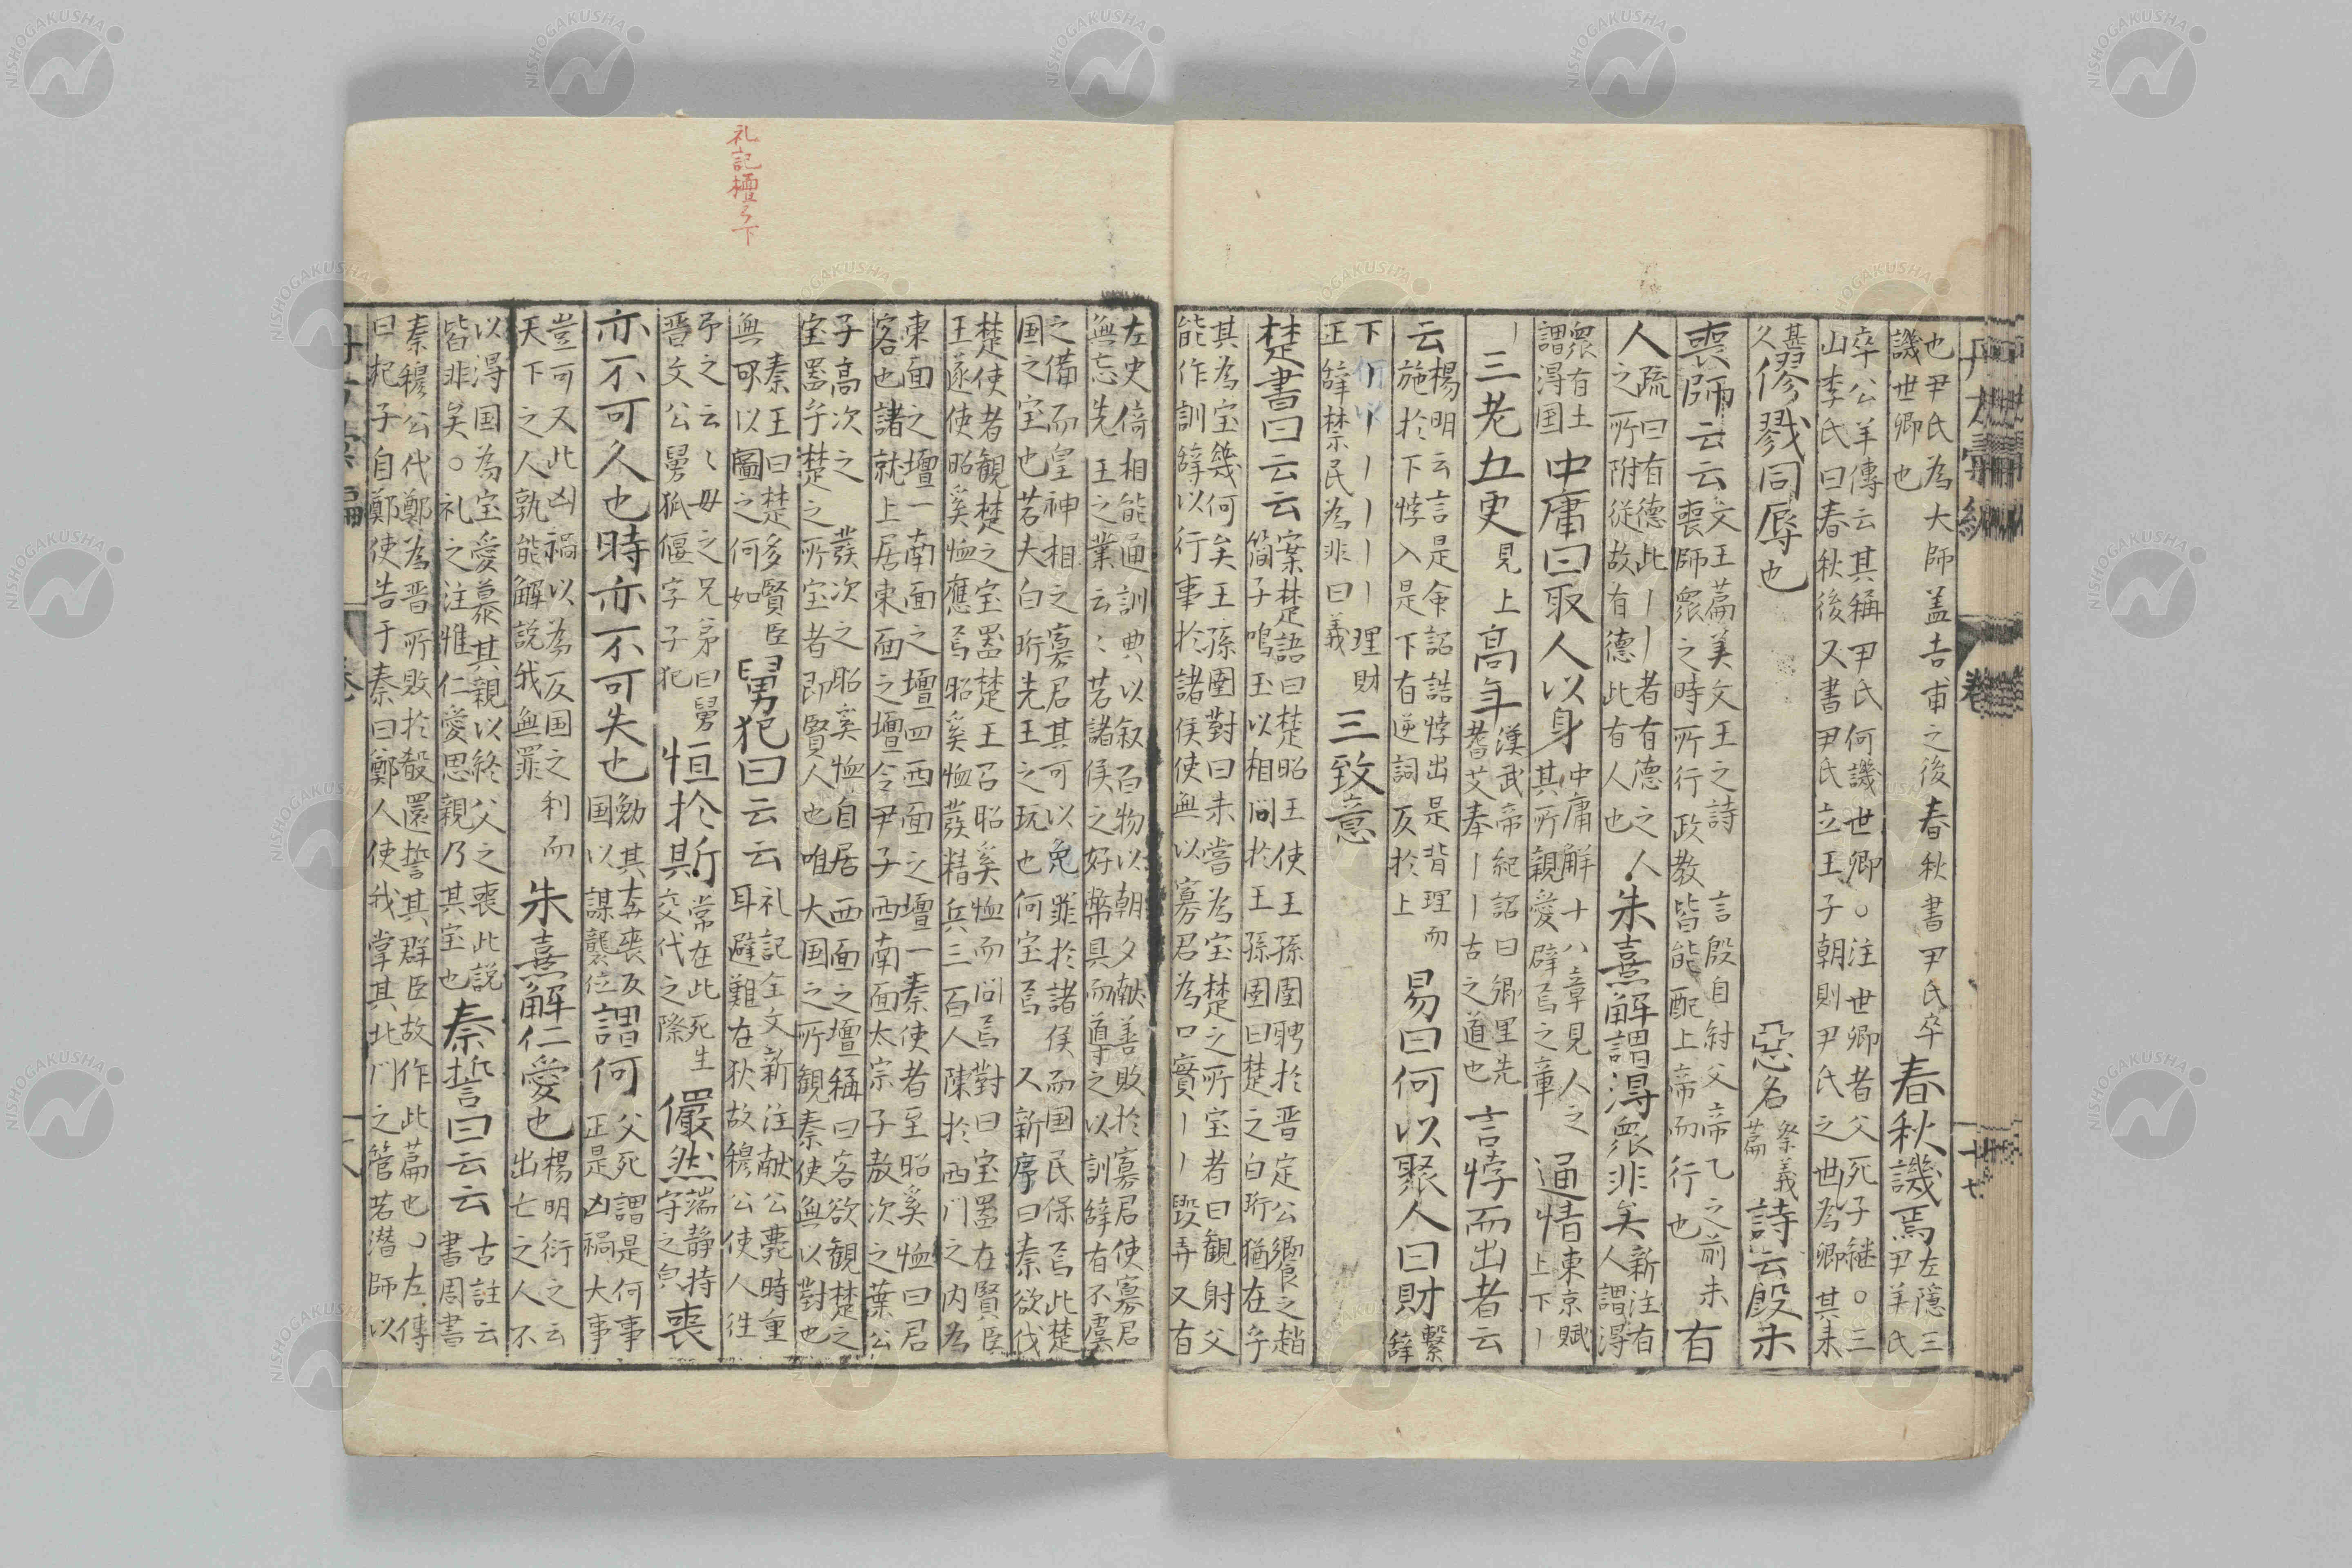 也尹氏為大師盖吉甫之後春秋書尹氏卒
譏世卿也
春秋譏焉
左隱三
尹羊氏
卒公羊傳云其稱尹氏何譏世卿○注世卿者父死子継○三
山李氏曰春秋後又書尹氏立王子朝則尹氏之世為卿其来
甚
久
僇戮同辱也
惡名
祭義
篇
詩云殷未
喪師云云
文王篇美文王之詩
喪師衆之時所行政教皆能配上帝而行也
言殷自紂父帝乙之前未
有
人
疏曰有德此丨丨者有德之人
之所附従故有德此有人也
朱熹解謂淂衆非矣
新注有
人謂淂
衆有土
謂淂国
中庸曰取人以身
中庸解十八章見人之
其所親愛辟焉之章
通情
東京賦
上下丨
丨三老五更
見上
高年
漢武帝紀詔曰卿里先
耆艾奉丨丨古之道也
言悖而出者云
云
楊明云言是命詔誥悖出是背理而
施於下悖入是下有逆詞反於上
易曰何以聚人曰財
繫
辞
下何以丨丨丨丨丨理財
正辞禁民為非曰義
三致意
楚書曰云云
案楚語曰楚昭王使王孫圉聘於晋定公饗之趙
簡子鳴玉以相問於王孫圉曰楚之白珩猶在乎
其為宝幾何矣王孫圉對曰未嘗為宝楚之所宝者曰観射父
能作訓辞以行事於諸侯使無以寡君為口實丨丨毀弄又有
左史倚相能通訓典以叙百物以朝夕献善敗於寡居使寡君
無忘先王之業云〻若諸侯之好幣具而導之以訓辞有不虞
之備而皇神相之寡君其可以免罪於諸侯而国民保焉此楚
国之宝也若大白珩先王之玩也何宝焉　又新序曰秦欲伐
楚使者観楚之宝噐楚王召昭奚恤而问焉對曰宝噐在賢臣
王遂使昭奚恤應焉昭奚恤蕟精兵三百人陳於西门之内為
東面之壇一南面之壇四西面之壇一秦使者至昭奚恤曰君
客也諸就上居東面之壇令尹子西南面太宗子敖次之葉公
子高次之　蕟次之昭奚恤自居西面之壇稱曰客欲観楚之
宝噐乎楚之所宝者即賢人也唯大国之所観秦使無以對也
秦王曰楚多賢臣
無可以圖之何如
舅犯曰云云
礼記全文新注献公薨時重
耳避難在狄故穆公使人徃
弔之云〻毋之兄弟曰舅
晋文公舅狐偃字子犯
恒於斯
常在此死生
交代之際
儼然
端静持
守之皃
喪
亦不可久也時亦不可失也
勉其奔喪反
国以謀襲位
謂何
父死謂是何事
正是凶禍大事
豈可又此凶禍以為反国之利而
天下之人孰能解說我無罪
朱熹解仁愛也
楊明衍之云
出亡之人不
以淂国為宝愛慕其親以終父之喪此説
皆非矣○礼之注惟仁愛思親乃其宝也
秦誓曰云云
古註云
書周書
秦穆公代鄭為晋所敗於殽還誓其群臣故作此篇也○左傳
曰杞子自鄭使告于秦曰鄭人使我掌其北门之管若潜師以
礼記檀弓下